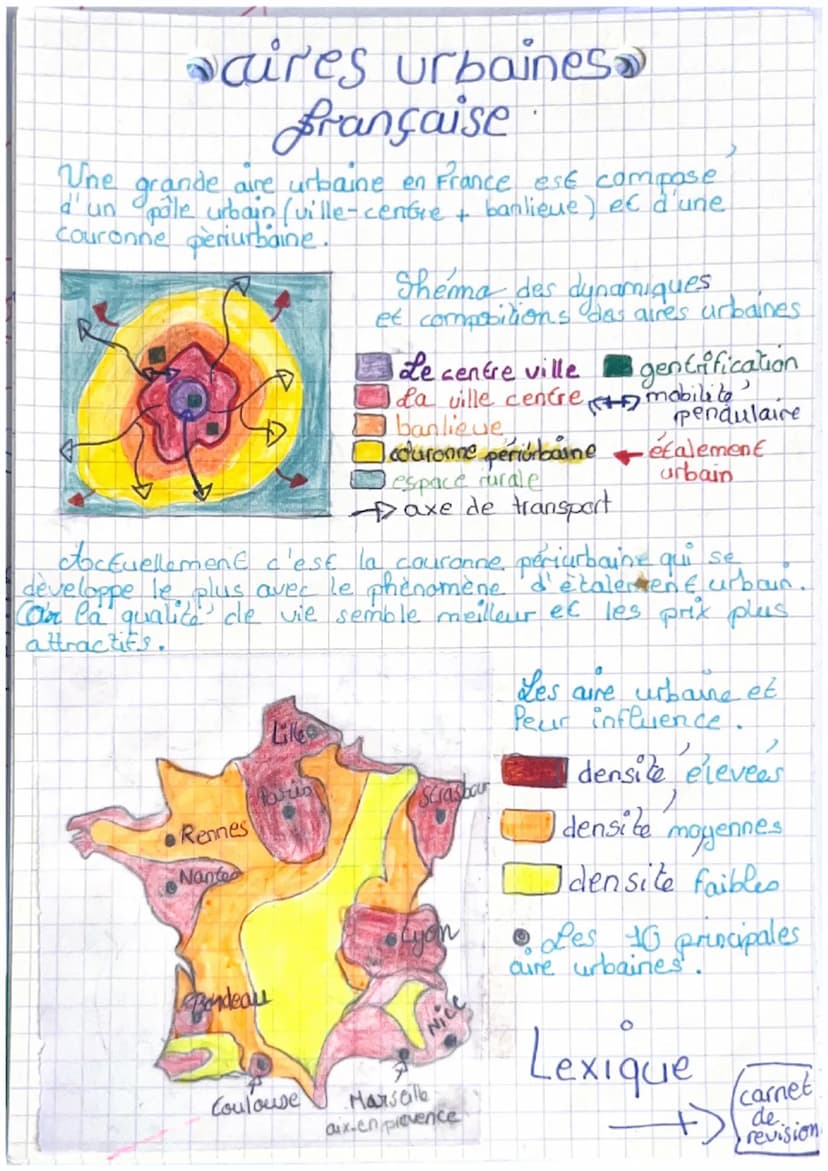 aires urbaines
française
Une grande aire urbaine en France est composé
d'un pôle urbain (ville-centre + banlieue) et d'une
couronne périurbaine.
Shéma des dynamiques
et compositions des aires urbaines
Le centre ville
gentrification
la ville centre
mobilité
pendulaire
banlieue
couronne périurbaine
étalement
urbain
espace rurale
axe de transport
Actuellement c'est la couronne périurbaine qui se
développe le plus avec le phénomène d'étalement urbain.
Car la qualité de vie semble meilleur et les prix plus
attractifs.
Les aire urbaine et
leur influence.
densité élevées
densité moyennes
densite faibles
Les 10 principales
aire urbaines.
Lille
Paris
Strasbour
Rennes
Nantes
Lyon
Bordeau
Nice
Toulouse
Marseille
aix-en-provence
Lexique
carnet
de
revision